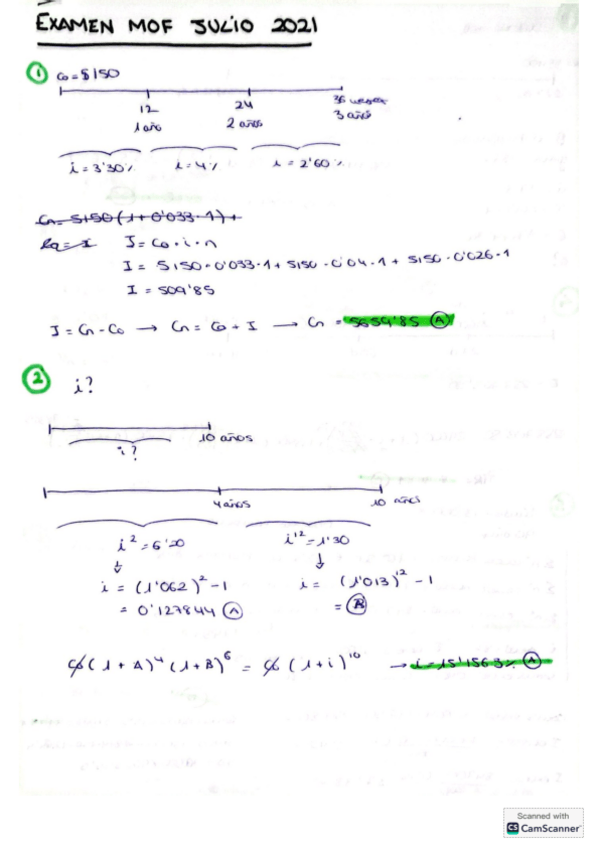 EXAMEN MOF JULIO 2021
① C₀ = 5150
12 24 36 meses
1 año 2 años 3 años
i = 3'30% i = 4% i = 2'60%
Cn = 5150 (1 + 0'033 · 1) +
I = C₀ · i · n
I = 5150 · 0'033 · 1 + 5150 · 0'04 · 1 + 5150 · 0'026 · 1
I = 509'85
I = Cn - C₀ → Cn = C₀ + I → Cn = 5659'85 Ⓐ
② i?
10 años
i?
4 años 10 años
i² = 6'20 i¹² = 1'30
↓ ↓
i = (1'062)² - 1 i = (1'013)¹² - 1
= 0'127844 Ⓐ = Ⓑ
C₀ (1 + A)⁴ (1 + B)⁶ = C₀ (1 + i)¹⁰ → i = 15'1563% Ⓐ
Scanned with
CS CamScanner